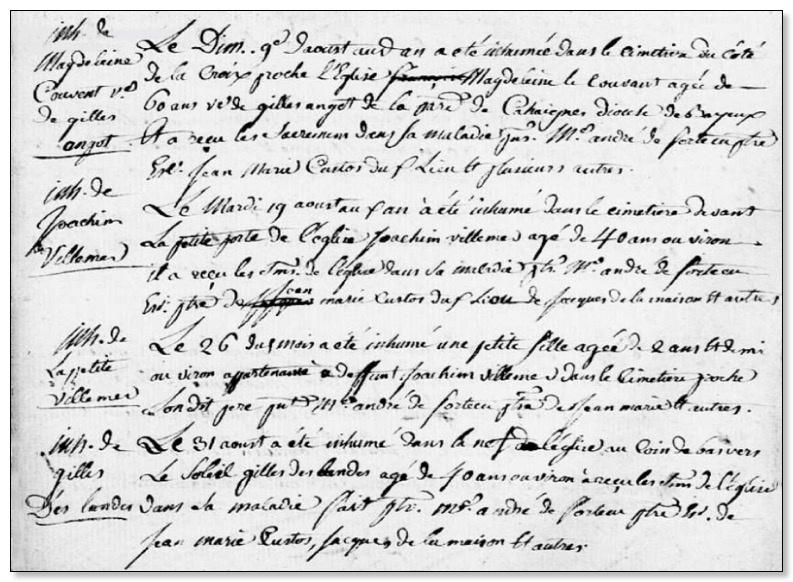 inh. de
Magdeleine
Couvent v.e
de gilles
angot
Le Dim. 9e d'aoust aud an a été inhumée dans le cimetiere du côté
de la Croix proche L'Eglise françoise Magdeleine le Couvant agée de
60 ans ve. de gilles angot de la parr. de Cahaignes diocese de Bayeux
Et a reçu les Sacremens dans sa maladie M.e andré de forteeu ptre
Jean Marie Custos du Lieu Et plusieurs autres.
inh. de
Joachim
Villemer
Le Mardi 19 aoust au an a été inhumé dans le cimetiere devant
La petite porte de l'église Joachim villemer agé de 40 ans ou viron
il a reçu les de l'église dans sa maladie M.e andré de forteeu
ptre de Jean marie Custos du Lieu de Jacques de la maison Et autres
inh. de
La petite
Villemer
Le 26 du mois a été inhumé une petite fille agée de 2 ans Et demi
ou viron appartenante a deffunt Joachim villemer dans le Cimetiere proche
Son dit pere M.e andré de forteeu ptre de Jean marie Et autres.
inh. de
gilles
Des landes
Le 31 aoust a été inhumé dans la nef de léglise au coin de bas vers
Le Soleil gilles des landes agé de 40 ans ou viron a reçu les de l'église
dans sa maladie fait M.e andré de forteeu ptre de
Jean marie Custos, Jacques de la maison Et autres.